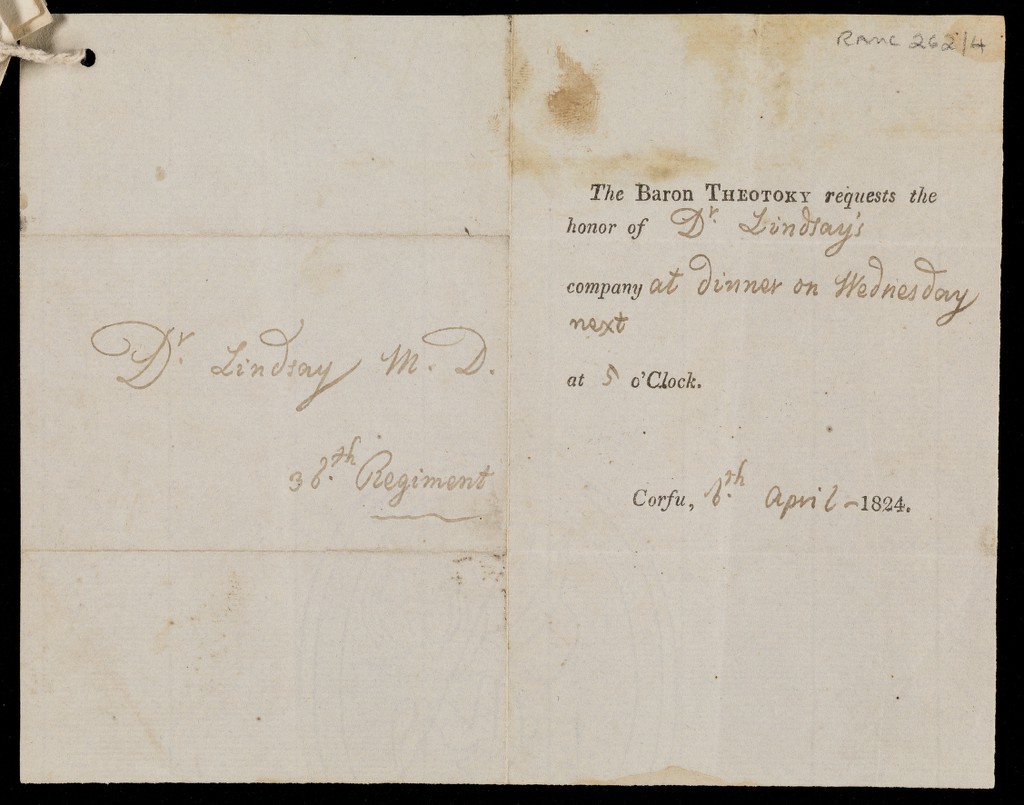 RAMC 262/4
Dr. Lindsay M. D.
36.th Regiment
The Baron THEOTOKY requests the
honor of Dr. Lindsay's
company at dinner on Wednesday
next
at 5 o'Clock.
Corfu, 6.th April - 1824.